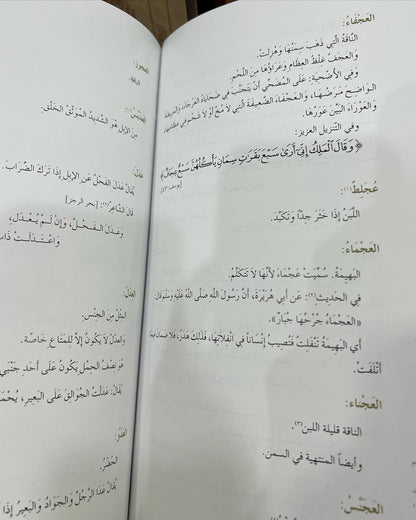 العَجْفَاءُ:
النَّاقَةُ الَّتِي ذَهَبَ سِمَنُهَا وَهُزِلَتْ.
وَالعَجَفُ غِلَظُ العِظَامِ وَعَرَاؤُهَا مِنَ اللَّحْمِ.
وَفِي الأُضْحِيَةِ: عَلَى المُضَحِّي أَنْ يَتَجَنَّبَ فِي ضَحَايَاهُ العَرْجَاءَ، وَالمَرِيضَةَ
الوَاضِحَ مَرَضُهَا، وَالعَجْفَاءَ الضَّعِيفَةَ الَّتِي لَا مُخَّ أَوْ لَا شَحْمَ فِي عِظَامِهَا،
وَالعَوْرَاءَ البَيِّنَ عَوَرُهَا.
وفي التنزيل العزيز:
﴿وَقَالَ الْمَلِكُ إِنِّي أَرَىٰ سَبْعَ بَقَرَاتٍ سِمَانٍ يَأْكُلُهُنَّ سَبْعٌ عِجَافٌ﴾
[يوسف: ٤٣]
عُجَلِطٌ(١):
اللَّبَنُ إِذَا خَثُرَ جِدًّا وَتَكَبَّدَ.
العَجْمَاءُ:
البَهِيمَةُ. سُمِّيَتْ عَجْمَاءَ لأَنَّهَا لَا تَتَكَلَّمُ.
فِي الحَدِيثِ(٢): عَنْ أَبِي هُرَيْرَةَ، أَنَّ رَسُولَ اللَّهِ صَلَّى اللَّهُ عَلَيْهِ وَسَلَّمَ قَالَ:
«العَجْمَاءُ جُرْحُهَا جُبَارٌ».
أَي البَهِيمَةُ تَنْفَلِتُ فَتُصِيبُ إِنْسَاناً فِي انْفِلَاتِهَا، فَذَلِكَ هَدَرٌ، فَلَا ضَمَانَ فِيمَا
أَتْلَفَتْ.
العَجْنَاء:
الناقة قليلة اللبن(٣).
وأيضاً المنتهية في السمن.
العَجَنَّسُ:
النَّاقَةُ.
مِنَ الإِبِلِ هُوَ الشَّدِيدُ المُوَثَّقُ الخَلْقِ.
عَدَلَ:
يُقَالُ عَدَلَ الفَحْلُ عَنِ الإِبِلِ إِذَا تَرَكَ الضِّرَابَ.
قَالَ الشَّاعِرُ: [بحر الرجز]
وَعَدَلَ الفَحْلُ، وَإِنْ لَمْ يُعْدَلِ،
وَاعْتَدَلَتْ ذَاتُ
العِدْلُ:
المِثْلُ مِنَ الجِنْسِ.
وَالعِدْلُ لَا يَكُونُ إِلَّا لِلْمَتَاعِ خَاصَّةً.
هُوَ نِصْفُ الحِمْلِ يَكُونُ عَلَى أَحَدِ جَنْبَيِ
يُقَالُ: عَدَلْتُ الجُوَالِقَ عَلَى البَعِيرِ،
الحُضْرُ.
يُقَالُ عَدَا الرَّجُلُ وَالجَوَادُ وَالبَعِيرُ إِذَا